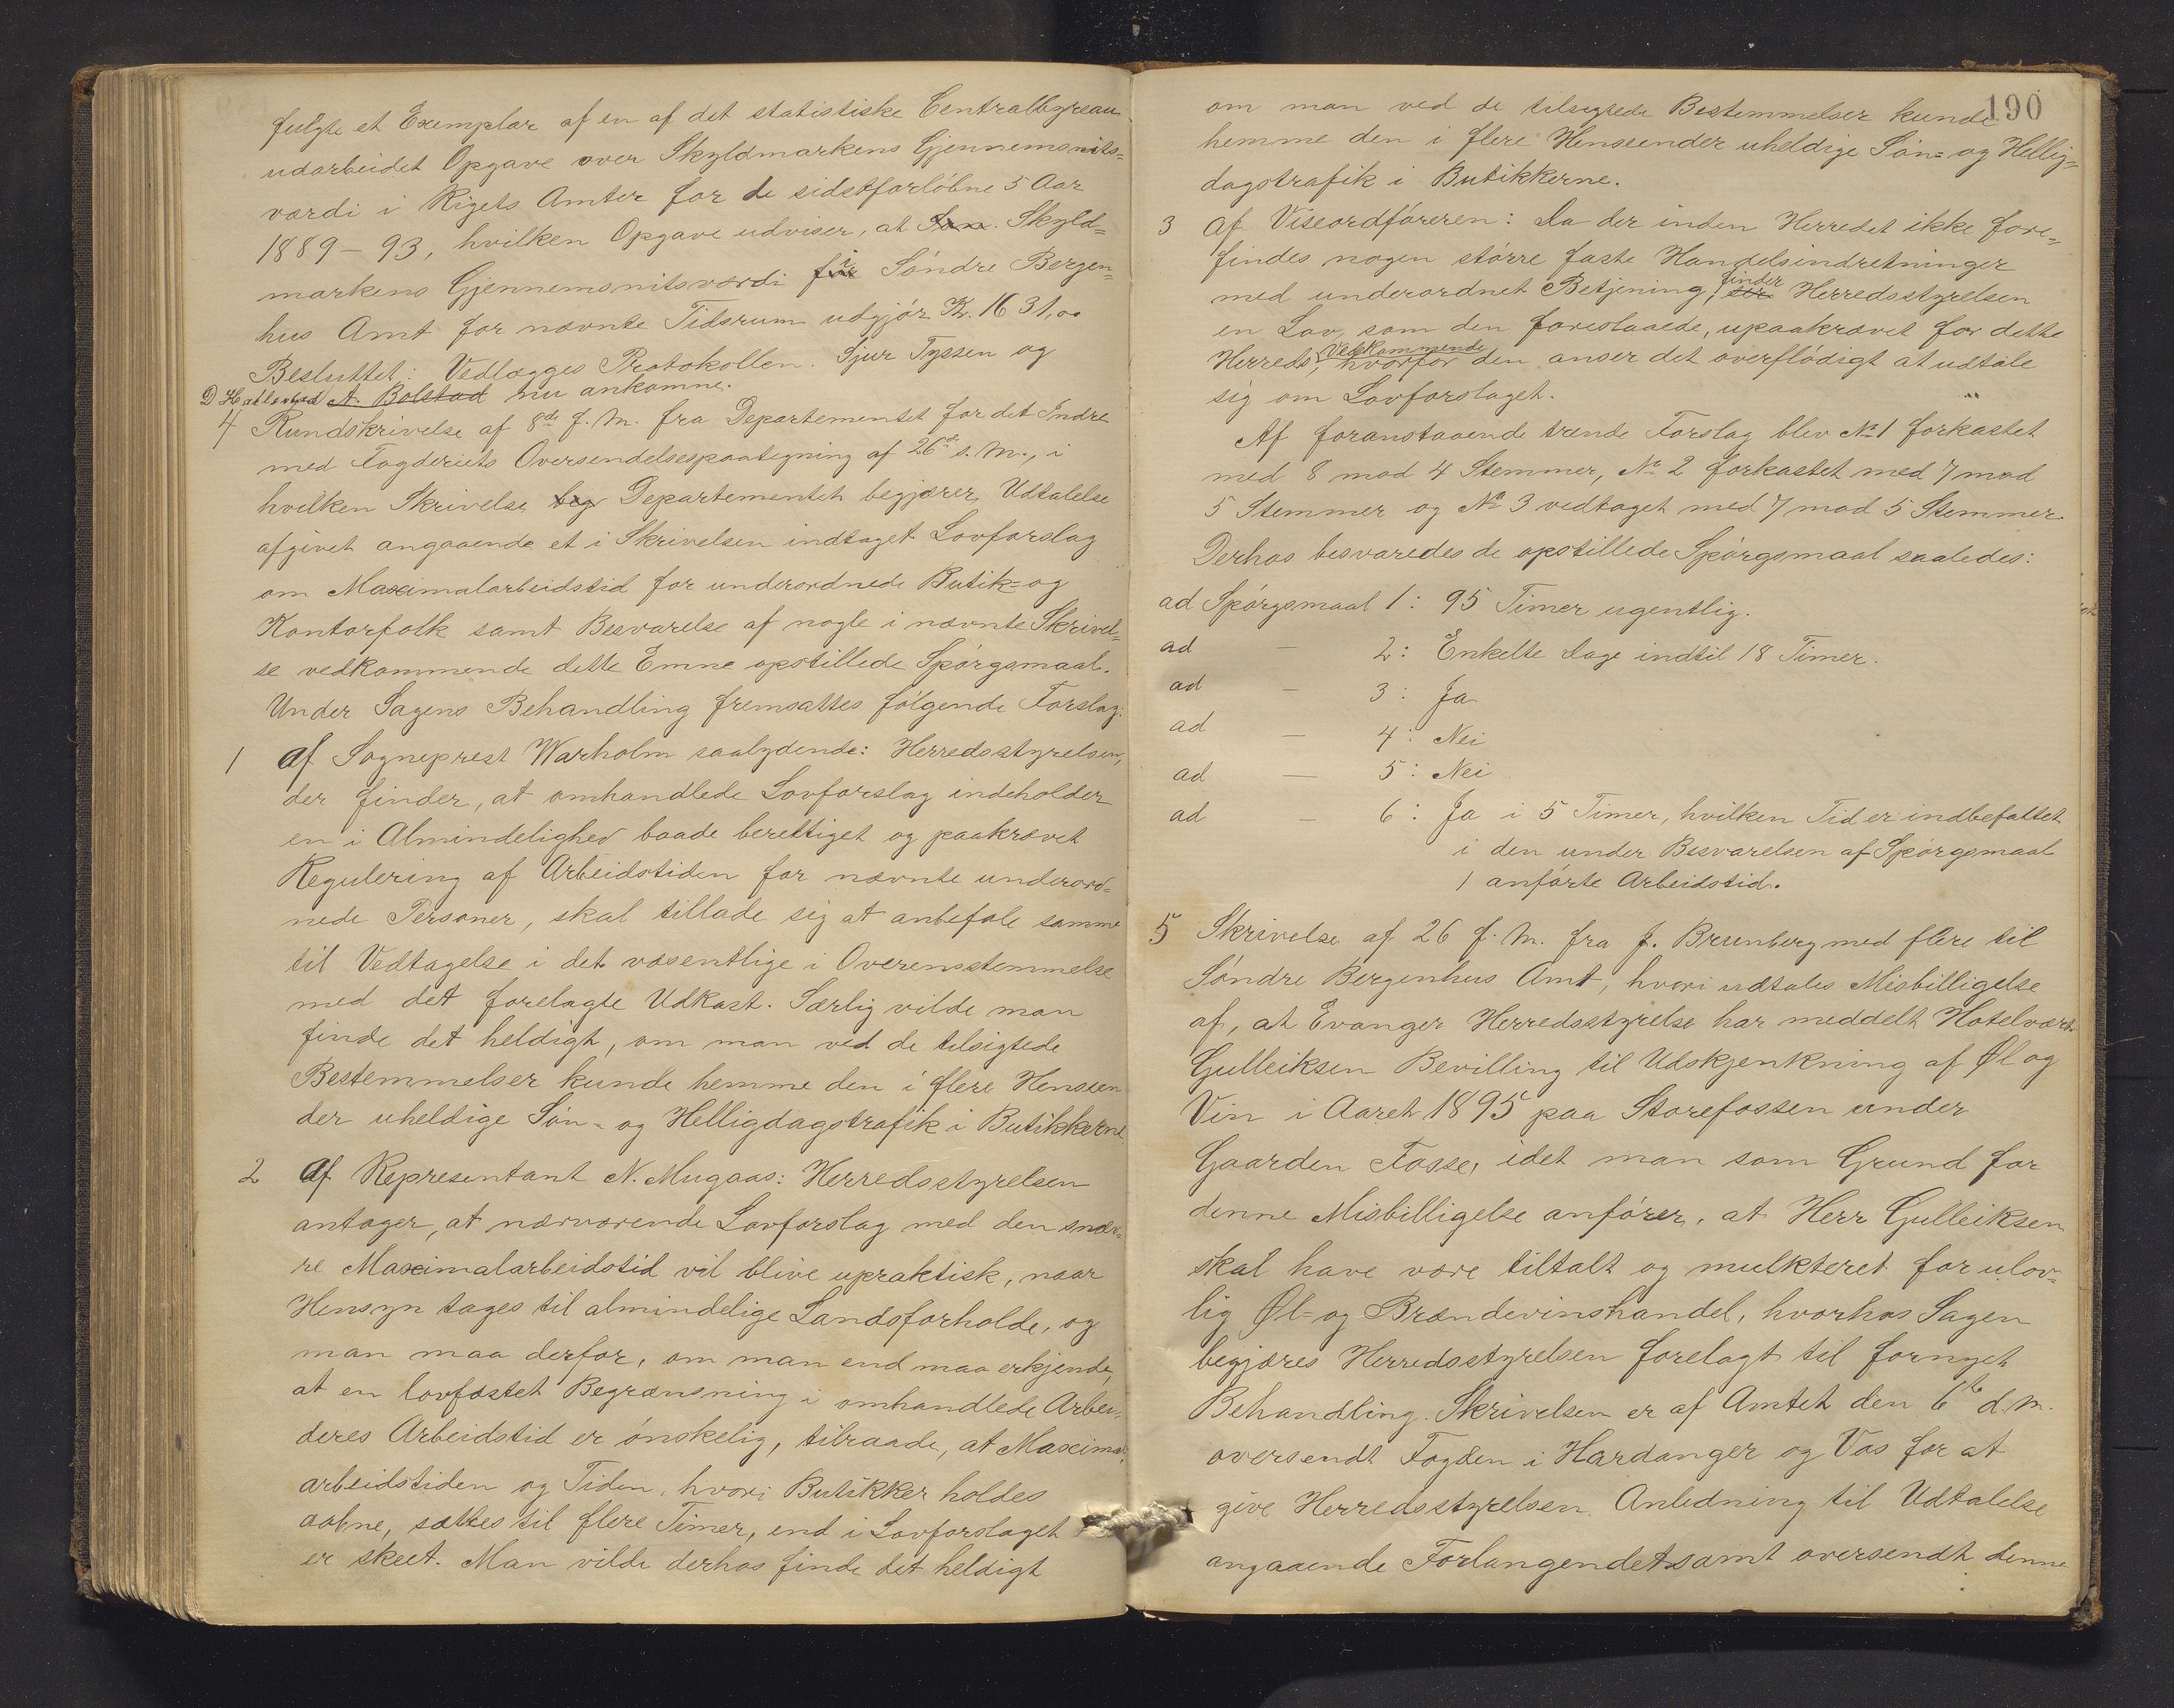 fulgte et Exemplar af en af det statistiske Centralbyreau
udarbeidet Opgave over Skyldmarkens Gjennemsnits=
værdi i Rigets Amter for de sidstforløbne 5 Aar
1889 - 93, hvilken Opgave udviser, at Søn. Skyld=
markens Gjennemsnitsværdi for i Søndre Bergen=
hus Amt for nævnte Tidsrum udgjør Kr. 1631,00
Besluttet: Vedlægges Protokollen. Sjur Tyssen og
D Hallestad A. Bolstad nu ankomne.
4 Rundskrivelse af 8de f. M. fra Departementet for det Indre
med Fogderiets Oversendelsespaategning af 26de s. M., i
hvilken Skrivelse beg Departementet begjærer Udtalelse
afgivet angaaende et i Skrivelsen indtaget Lovforslag
om Maximalarbeidstid for underordnede Butik= og
Kontorfolk samt Besvarelse af nogle i nævnte Skrivel=
se vedkommende dette Emne opstillede Spørgsmaal.
Under Sagens Behandling fremsattes følgende Forslag:
1 Af Sogneprest Warholm saalydende: Herredsstyrelsen,
der finder, at omhandlede Lovforslag indeholder
en i Almindelighed baade berettiget og paakrævet
Regulering af Arbeidstiden for nævnte underord=
nede Personer, skal tillade sig at anbefale samme
til Vedtagelse i det væsentlige i Overensstemmelse
med det forelagte Udkast. Særlig vilde man
finde det heldigt, om man ved de tilsigtede
Bestemmelser kunde hemme den i flere Henseen
der uheldige Søn- og Helligdagstrafik i Butikkerne
2 Af Representant N. Mugaas: Herredsstyrelsen
antager, at nærværende Lovforslag med den snæv=
re Maximalarbeidstid vil blive upraktisk, naar
Hensyn tages til almindelige Landsforholde, og
man maa derfor, om man end maa erkjende,
at en lovfæstet Begrænsning i omhandlede Arbei=
deres Arbeidstid er ønskelig, tilraade, at Maximal=
arbeidstiden og Tiden, hvori Butikker holdes
aabne, sættes til flere Timer, end i Lovforslaget
er skeet. Man vilde derhos finde det heldigt
190
om man ved de tilsigtede Bestemmelser kunde
hemme den i flere Henseender uheldige Søn= og Hellig=
dagstrafik i Butikkerne.
3 Af Viseordføreren: Da der inden Herredet ikke fore=
findes nogen større faste Handelsindretninger
med underordnet Betjening, ser finder Herredsstyrelsen
en Lov, som den foreslaaede, upaakrævet for dette
Herreds Vedkommende, hvorfor den anser det overflødigt at udtale
sig om Lovforslaget.
Af foranstaaende trænde Forslag blev No 1 forkastet
med 8 mod 4 Stemmer, No 2 forkastet med 7 mod
5 Stemmer og No 3 vedtaget med 7 mod 5 Stemmer.
Derhos besvaredes de opstillede Spørgsmaal saaledes:
ad Spørgsmaal 1: 95 Timer ugentlig.
ad — 2: Enkelte Dage indtil 18 Timer.
ad — 3: Ja
ad — 4: Nei
ad — 5: Nei
ad — 6: Ja i 5 Timer, hvilken Tid er indbefattet
i den under Besvarelsen af Spørgsmaal
1 anførte Arbeidstid.
5 Skrivelse af 26 f. M. fra J. Brunberg med flere til
Søndre Bergenhus Amt, hvori udtales Misbilligelse
af, at Evanger Herredsstyrelse har meddelt Hotelvært
Gulleiksen Bevilling til Udskjenkning af Øl og
Vin i Aaret 1895 paa Storefossen under
Gaarden Fosse, idet man som Grund for
denne Misbilligelse anfører, at Herr Gulleiksen
skal have være tiltalt og mulkteret for ulov=
lig Øl= og Brændevinshandel, hvorhos Sagen
begjæres Herredsstyrelsen forelagt til fornyet
Behandling. Skrivelsen er af Amtet den 6te d. M.
oversendt Fogden i Hardanger og Vos for at
give Herredsstyrelsen Anledning til Udtalelse
angaaende Forlangendet samt oversendt denne